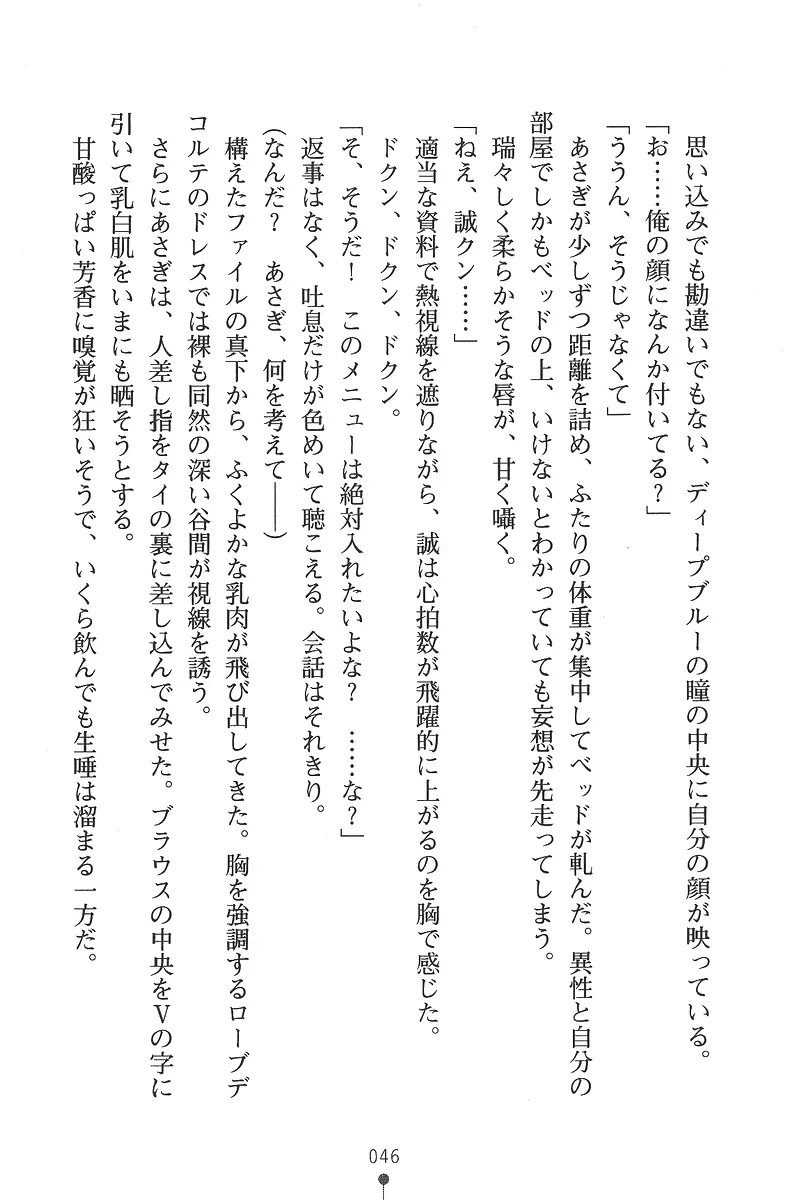 思い込みでも勘違いでもない、ディープブルーの瞳の中央に自分の顔が映っている。
「お……俺の顔になんか付いてる？」
「ううん、そうじゃなくて」
　あさぎが少しずつ距離を詰め、ふたりの体重が集中してベッドが軋んだ。異性と自分の
部屋でしかもベッドの上、いけないとわかっていても妄想が先走ってしまう。
　瑞々しく柔らかそうな唇が、甘く囁く。
「ねえ、誠クン……」
　適当な資料で熱視線を遮りながら、誠は心拍数が飛躍的に上がるのを胸で感じた。
　ドクン、ドクン、ドクン。
「そ、そうだ！　このメニューは絶対入れたいよな？　……な？」
　返事はなく、吐息だけが色めいて聴こえる。会話はそれきり。
（なんだ？　あさぎ、何を考えて――）
　構えたファイルの真下から、ふくよかな乳肉が飛び出してきた。胸を強調するローブデ
コルテのドレスでは裸も同然の深い谷間が視線を誘う。
　さらにあさぎは、人差し指をタイの裏に差し込んでみせた。ブラウスの中央をＶの字に
引いて乳白肌をいまにも晒そうとする。
　甘酸っぱい芳香に嗅覚が狂いそうで、いくら飲んでも生唾は溜まる一方だ。
046